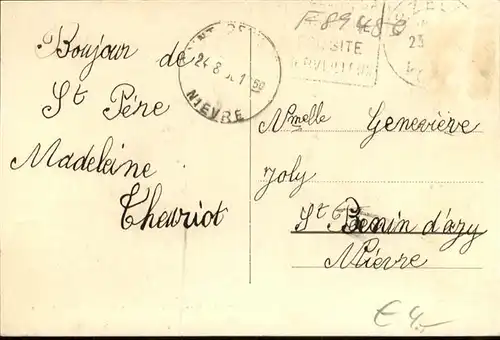 Boujour de
St Père
Madeleine
Theuriot
NIEVRE
F8948C
SITE
23
Nmelle Geneviève
Joly
St Benin d'azy
Nièvre
€ 4,-